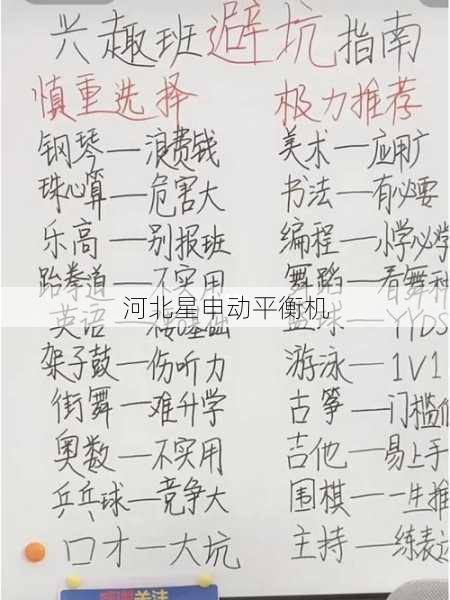 兴趣班避坑指南
慎重选择 极力推荐
钢琴—浪费钱 美术—应用广
珠心算—危害大 书法—有必要
乐高—别报班 编程—小学必学
跆拳道—不实用 舞蹈—看舞种
河北星申动平衡机
英语—接基础 篮球—YYDS
架子鼓—伤听力 游泳—1V1
街舞—难升学 古筝—门槛低
奥数—不实用 吉他—易上手
乒乓球—竞争大 围棋—一生推
口才—大坑 主持—练表达
关注